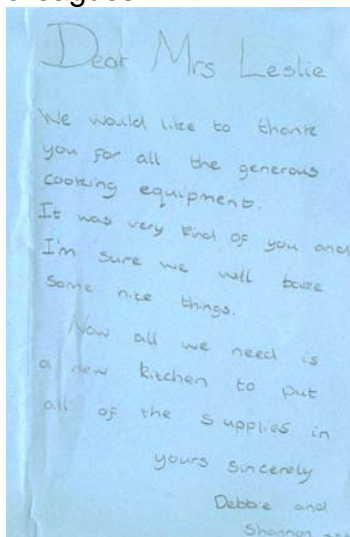 Dear Mrs Leslie
We would like to thank
you for all the generous
cooking equipment.
It was very kind of you and
I'm sure we will bake
some nice things.
Now all we need is
a new kitchen to put
all of the supplies in
yours sincerely
Debbie and
Shannon